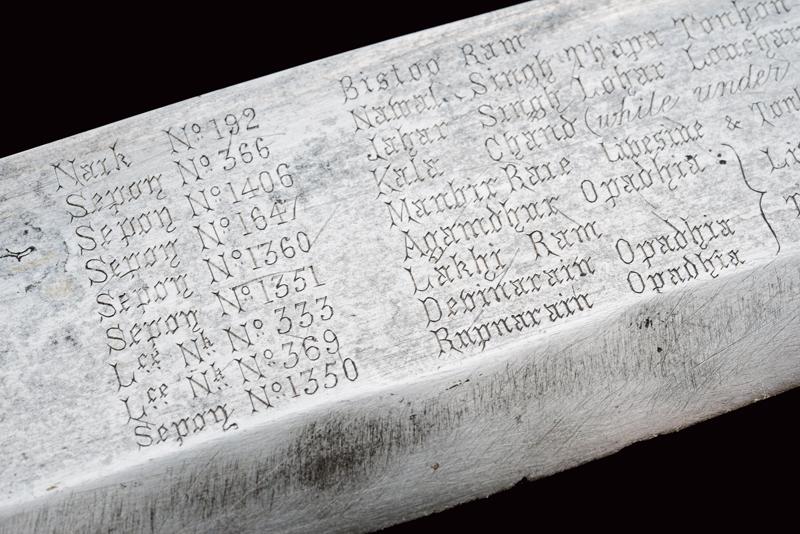 Naik Nº 192 Bistoo Ram
Sepoy Nº 366 Nawal Singh Thapa Tonhon
Sepoy Nº 1406 Jahar Singh Lohar
Sepoy Nº 1647 Kala Chand (while under
Sepoy Nº 1360 Manbir Raie Libesine &
Sepoy Nº 1351 Agamdhur Opadhia
Lce Nk Nº 333 Lakhi Ram
Lce Nk Nº 369 Debinarain Opadhia
Sepoy Nº 1350 Rupnarain Opadhia